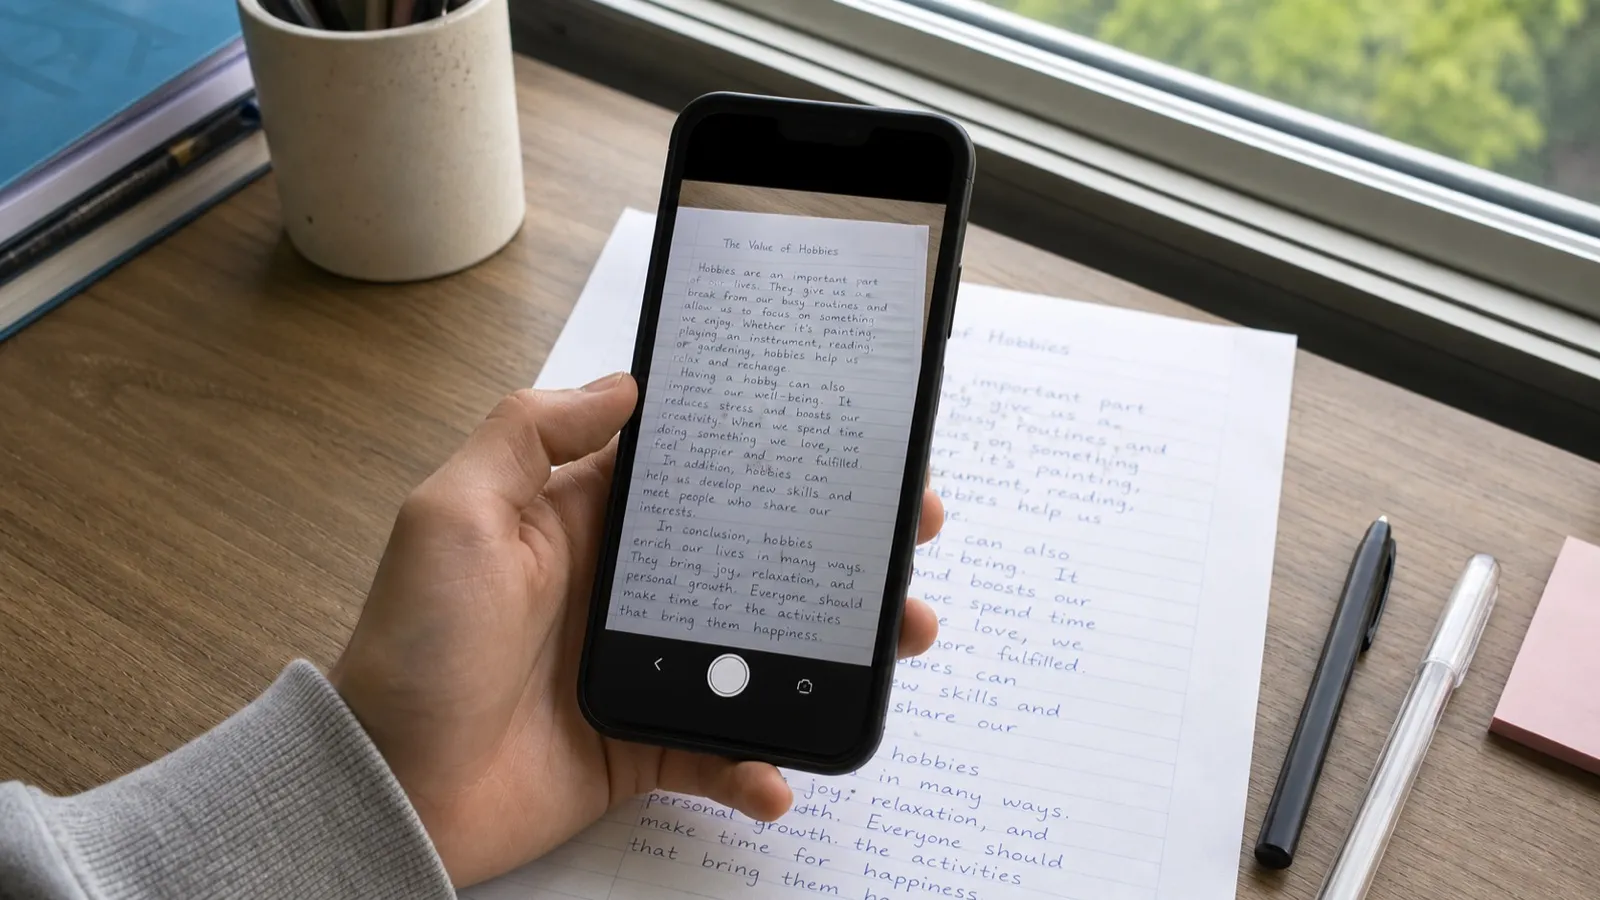 The Value of Hobbies
Hobbies are an important part
of our lives. They give us a
break from our busy routines and
allow us to focus on something
we enjoy. Whether it's painting,
playing an insttrument, reading,
or gardening, hobbies help us
relax and recharge
Having a hobby can also
improve our well-being. It
reduces stress and boosts our
creativity. When we spend time
doing something we love, we
feel happier and more fulfilled
In addition, hobbies can
help us develop new skills and
meet people who share our
interests.
In conclusion, hobbies
enrich our lives in many ways.
They bring joy, relaxation, and
personal growth. Everyone should
make time for the activities
that bring them happiness.
of Hobbies
important part
they give us a
busy routines and
on something
it's painting,
reading,
help us
can also
ell-being. It
and boosts our
we spend time
love, we
more fulfilled.
can
skills and
share our
hobbies
in many ways.
joy, relaxation, and
personal growth. Everyone should
make time for the activities
that bring them happiness